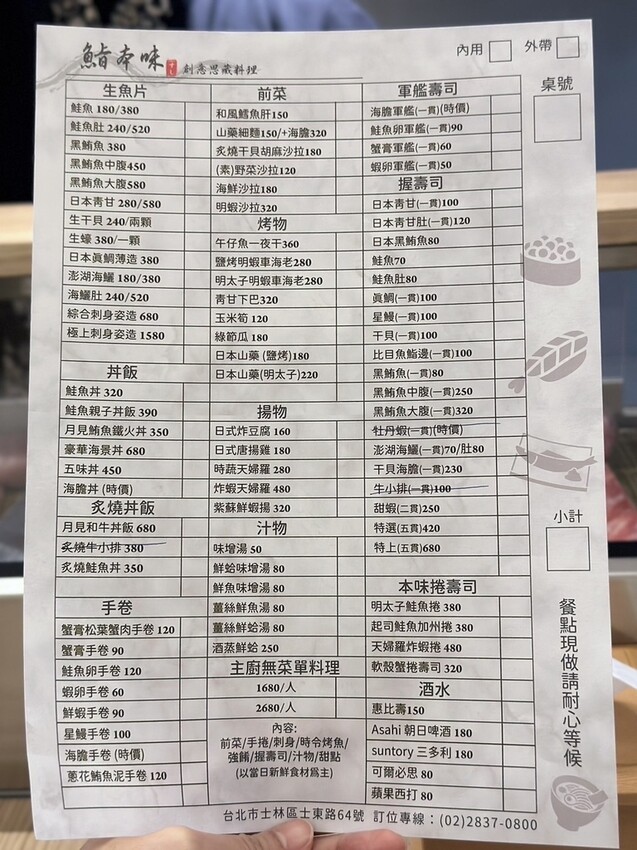 鮨本味 創意思葳料理
內用 外帶
桌號
生魚片
鮭魚 180/380
鮭魚肚 240/520
黑鮪魚 380
黑鮪魚中腹450
黑鮪魚大腹580
日本青甘 280/580
生干貝 240/兩顆
生蠔 380/一顆
日本真鯛薄造 380
澎湖海鱺 180/380
海鱺肚 240/520
綜合刺身姿造 680
極上刺身姿造 1580
丼飯
鮭魚丼 320
鮭魚親子丼飯 390
月見鮪魚鐵火丼 350
豪華海景丼 680
五味丼 450
海膽丼 (時價)
炙燒丼飯
月見和牛丼飯 680
炙燒牛小排 380
炙燒鮭魚丼 350
手卷
蟹膏松葉蟹肉手卷 120
蟹膏手卷 90
鮭魚卵手卷 120
蝦卵手卷 60
鮮蝦手卷 90
星鰻手卷 100
海膽手卷 (時價)
蔥花鮪魚泥手卷 120
前菜
和風鱈魚肝150
山藥細麵150/+海膽320
炙燒干貝胡麻沙拉180
(素)野菜沙拉120
海鮮沙拉180
明蝦沙拉320
烤物
午仔魚一夜干360
鹽烤明蝦車海老280
明太子明蝦車海老280
青甘下巴320
玉米筍 120
綠節瓜 180
日本山藥 (鹽烤)180
日本山藥(明太子)220
揚物
日式炸豆腐 160
日式唐揚雞 180
時蔬天婦羅 280
炸蝦天婦羅 480
紫蘇鮮蝦揚 320
汁物
味增湯 50
鮮蛤味增湯 80
鮮魚味增湯 80
薑絲鮮魚湯 80
薑絲鮮蛤湯 80
酒蒸鮮蛤 250
主廚無菜單料理
1680/人
2680/人
內容:
前菜/手捲/刺身/時令烤魚/
強餚/握壽司/汁物/甜點
(以當日新鮮食材為主)
軍艦壽司
海膽軍艦(一貫)(時價)
鮭魚卵軍艦(一貫)90
蟹膏軍艦(一貫)60
蝦卵軍艦(一貫)50
握壽司
日本青甘(一貫)100
日本青甘肚(一貫)120
日本黑鮪魚80
鮭魚70
鮭魚肚80
真鯛(一貫)100
星鰻(一貫)100
干貝(一貫)100
比目魚鰭邊(一貫)100
黑鮪魚(一貫)80
黑鮪魚中腹(一貫)250
黑鮪魚大腹(一貫)320
牡丹蝦(一貫)(時價)
澎湖海鱺(一貫)70/肚80
干貝海膽(一貫)230
牛小排(一貫)100
甜蝦(二貫)250
特選(五貫)420
特上(五貫)680
本味捲壽司
明太子鮭魚捲 380
起司鮭魚加州捲 380
天婦羅炸蝦捲 480
軟殼蟹捲壽司 320
酒水
惠比壽150
Asahi 朝日啤酒 180
suntory 三多利 180
可爾必思 80
蘋果西打 80
小計
餐點現做請耐心等候
台北市士林區士東路64號 訂位專線：(02)2837-0800